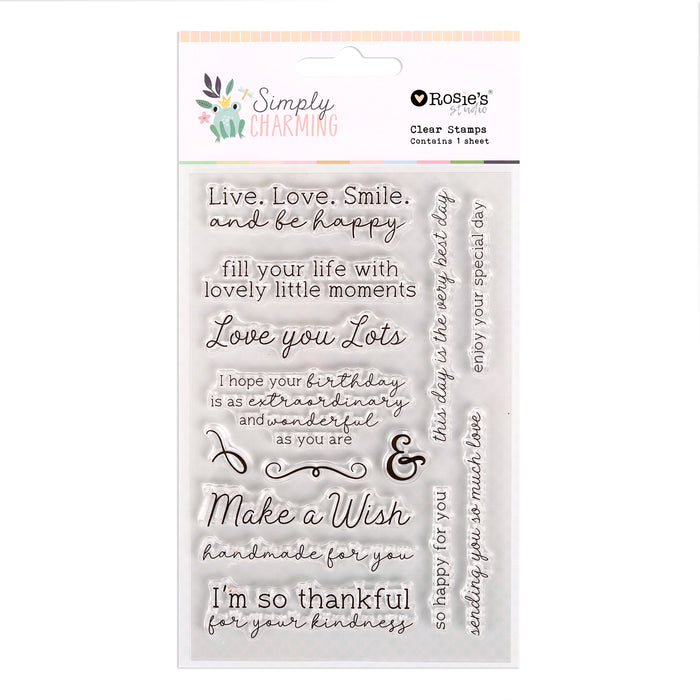 Simply
CHARMING
ROSIE'S
studio
Clear Stamps
Contains 1 sheet
Live. Love. Smile.
and be happy
fill your life with
lovely little moments
Love you Lots
I hope your birthday
is as extraordinary
and wonderful
as you are
&
Make a Wish
handmade for you
I'm so thankful
for your kindness
this day is the very best day
enjoy your special day
so happy for you
sending you so much love